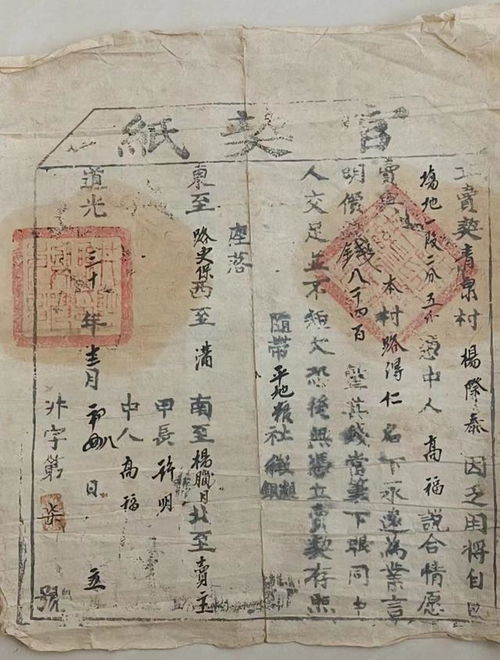 官契紙
立賣契青泉村楊際泰因乏用將自己
塲地一段二分五 中人高福說合情愿
賣與 本村路得仁名下永遠為業言
明價錢八千四百 整其錢當筆下眼同中
人交足並不短欠恐後無憑立賣契存照
隨帶平地糧社
座落
東至路史保西至溝南至楊職月北至賣主
甲長 許明
中人 高福
道光三十年 月初 日 立
字第 號